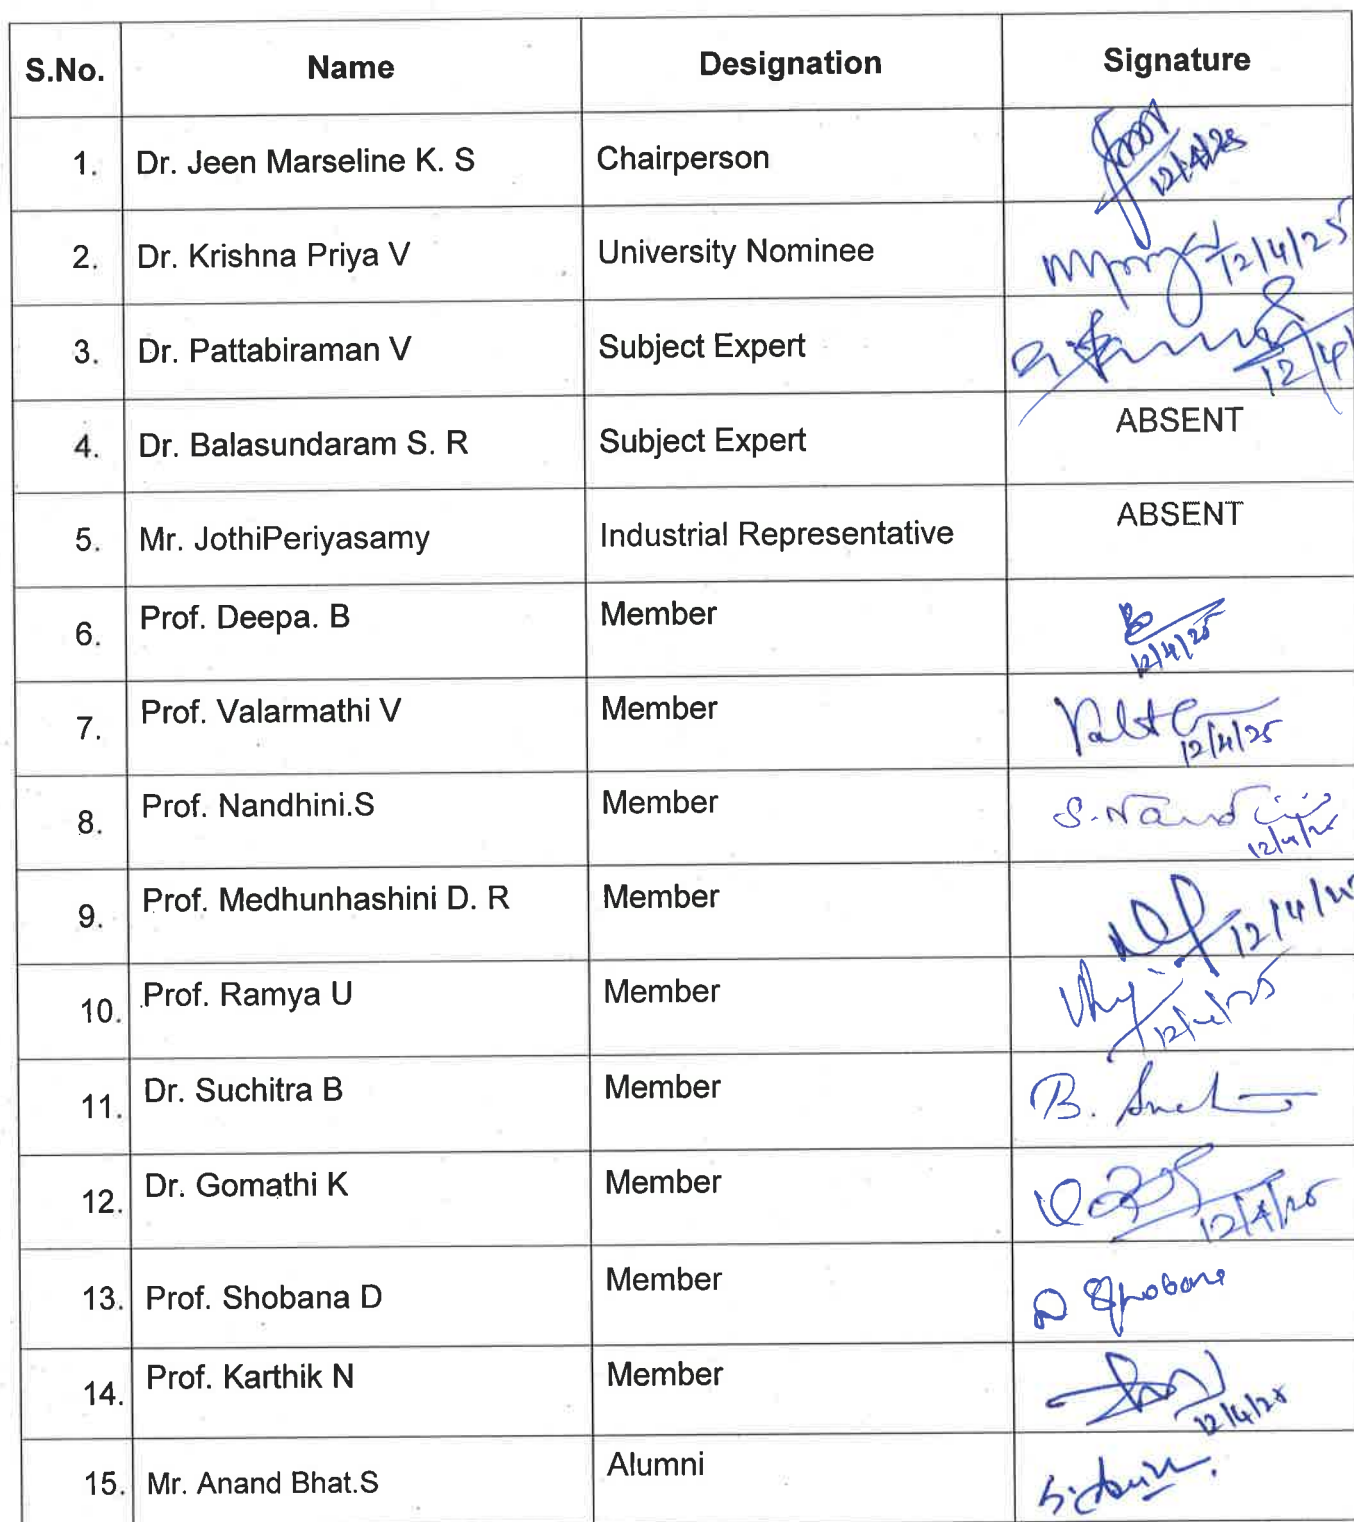 S.No. Name Designation Signature
1. Dr. Jeen Marseline K. S Chairperson
12/4/25
2. Dr. Krishna Priya V University Nominee 12/4/25
3. Dr. Pattabiraman V Subject Expert
12/4/
4. Dr. Balasundaram S. R Subject Expert ABSENT
5. Mr. JothiPeriyasamy Industrial Representative ABSENT
6. Prof. Deepa. B Member
12/4/25
7. Prof. Valarmathi V Member
12/4/25
8. Prof. Nandhini.S Member
12/4/25
9. Prof. Medhunhashini D. R Member 12/4/25
10. Prof. Ramya U Member
12/4/25
11. Dr. Suchitra B Member
12. Dr. Gomathi K Member
12/4/25
13. Prof. Shobana D Member D Shobana
14. Prof. Karthik N Member
12/4/25
15. Mr. Anand Bhat.S Alumni